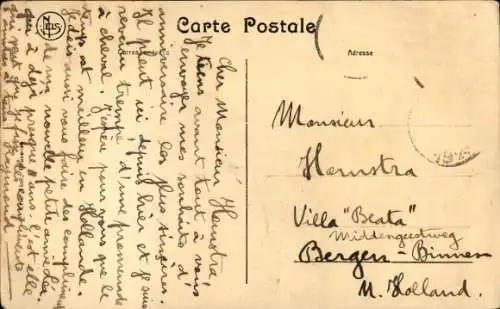 Carte Postale
Correspondance
Adresse
Cher Monsieur Hemstra,
Je tiens avant tout à vous
envoyer mes souhaits d'
anniversaire les plus sincères.
Il pleut ici depuis hier et je suis
revenu trempé d'une promenade
à cheval. J'espère pour vous que le
temps est meilleur en Hollande.
Je dois aussi vous faire des compliments
de ma nouvelle petite amie. Elle
a déjà presque ans. C'est elle
qui veut que je fasse des compliments
Amitiés à tous Raymond
Monsieur
Hemstra
Villa "Beata"
Middengeestweg
Bergen-Binnen
N. Holland.